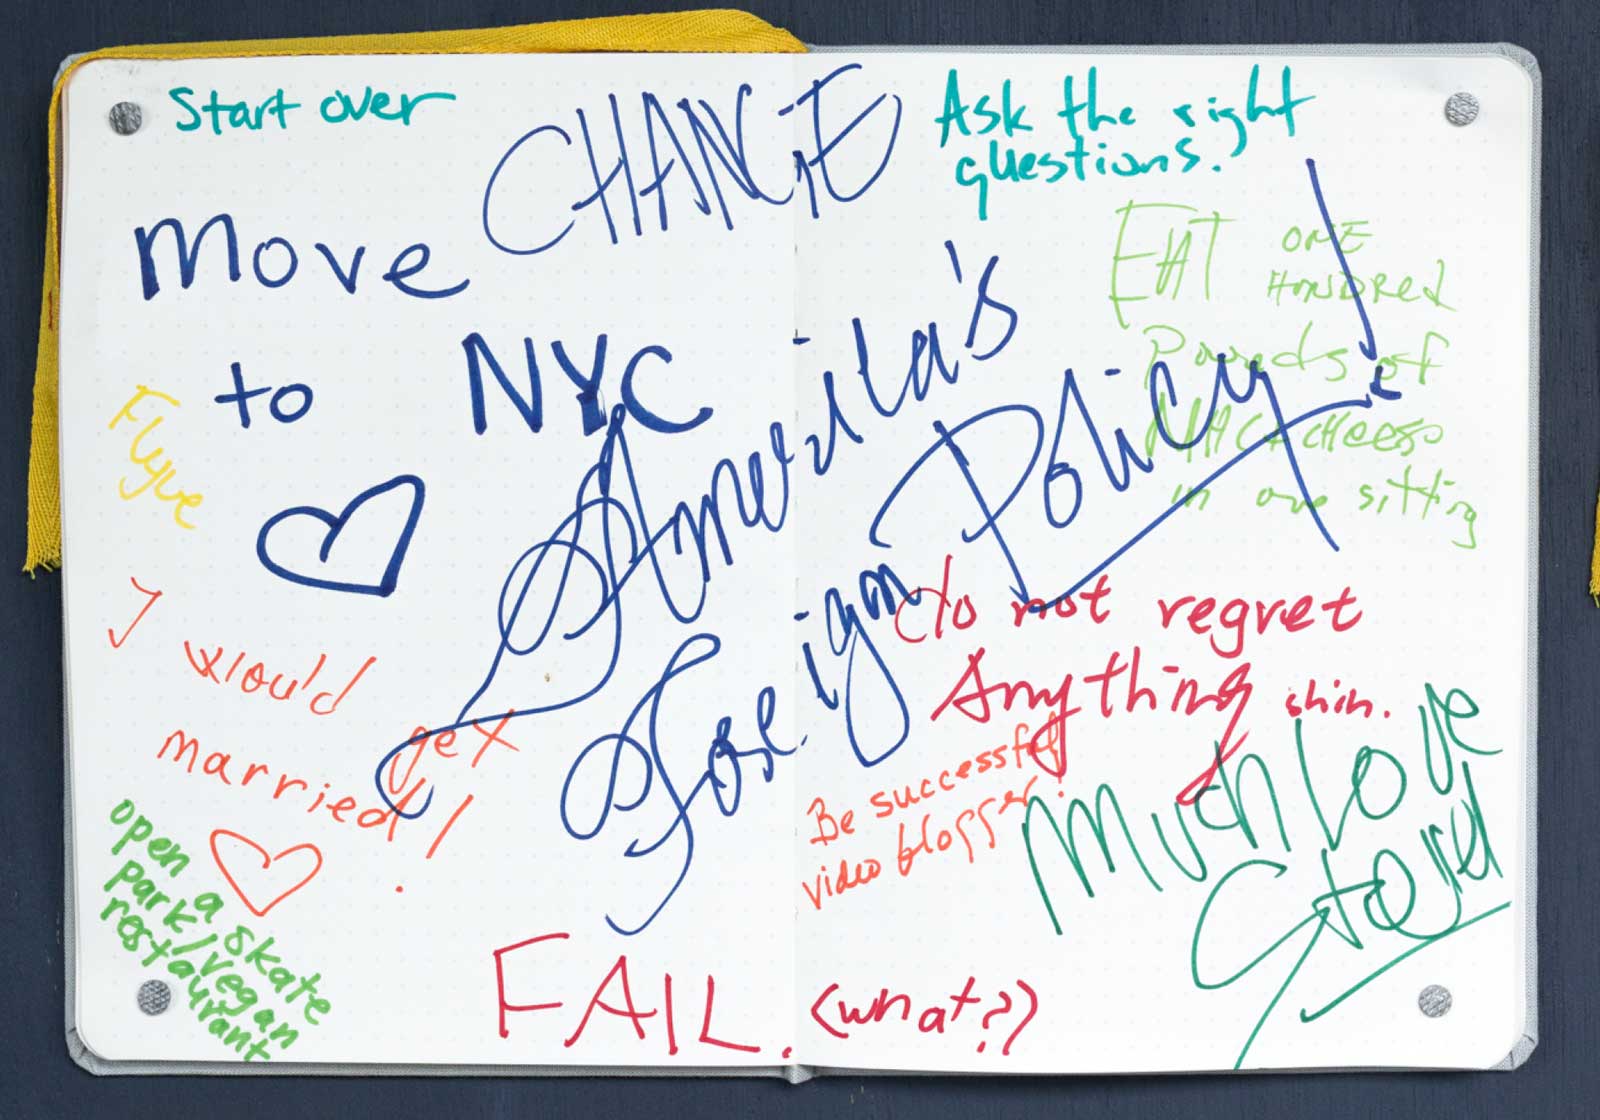 Start over
CHANGE
Ask the right
questions.
Move
to NYC
EAT ONE
HUNDRED
Pounds of
MAC+CHEESE
in one sitting
America's
Foreign Policy!
I would
get
married!
Do not regret
Anything shin.
Be successful
video blogger!
Much Love
open a skate
park/vegan
restaurant
FAIL. (what?)